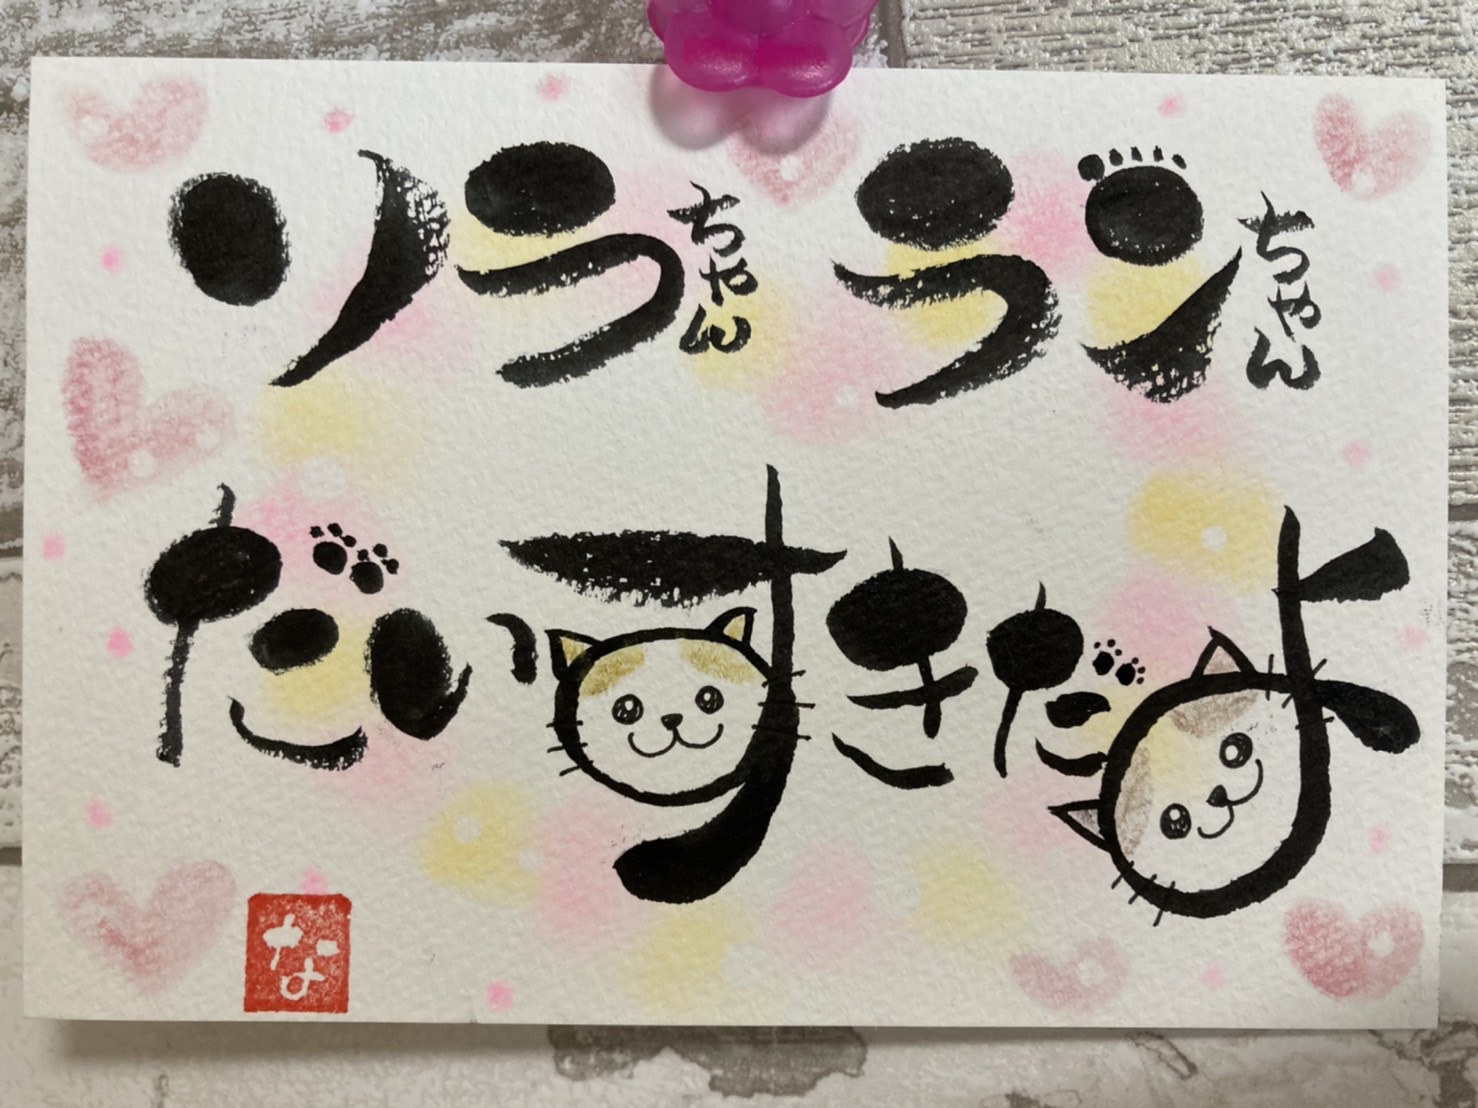 ソラちゃん ランちゃん
だいすきだよ
な